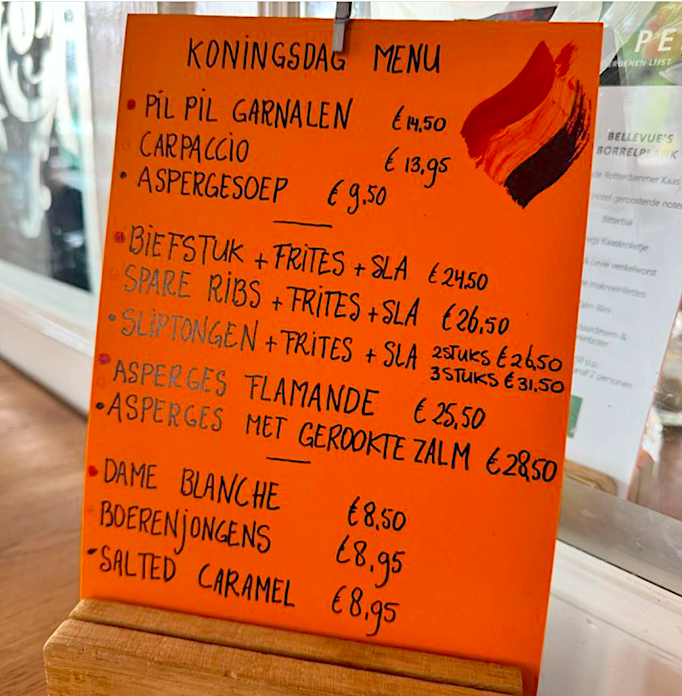 KONINGSDAG MENU
PIL PIL GARNALEN €14,50
CARPACCIO €13,95
ASPERGESOEP €9,50
BIEFSTUK + FRITES + SLA €24,50
SPARE RIBS + FRITES + SLA €26,50
SLIPTONGEN + FRITES + SLA 2 STUKS €26,50
3 STUKS €31,50
ASPERGES FLAMANDE €25,50
ASPERGES MET GEROOKTE ZALM €28,50
DAME BLANCHE €8,50
BOERENJONGENS €8,95
SALTED CARAMEL €8,95
PE
BELLEVUE'S
BORRELPLANK
Rotterdammer Kaas
geroosterde
Bitterbal
Kaaskroketje
venkelworst
2 personen